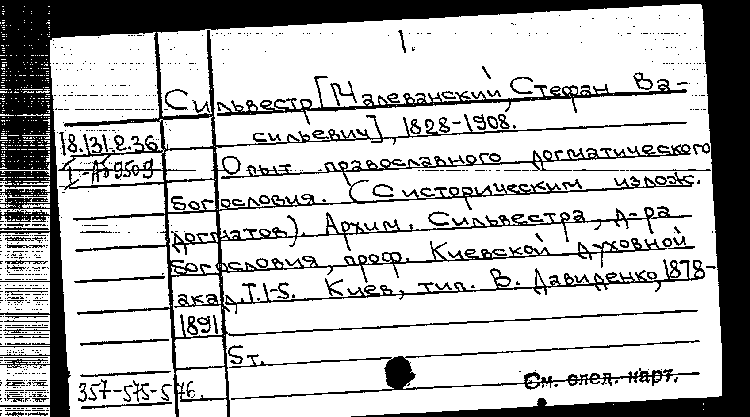 1.
Сильвестр [Малеванский, Стефан Ва-
18.131.2.36 сильевич], 1828-1908.
Опыт православного догматического
богословия. (С историческим излож.
догматов). Архим. Сильвестра, д-ра
богословия, проф. Киевской духовной
акад. Т.1-5. Киев, тип. В. Давиденко, 1878-
1891
5т.
357-575-576.
См. след. карт.